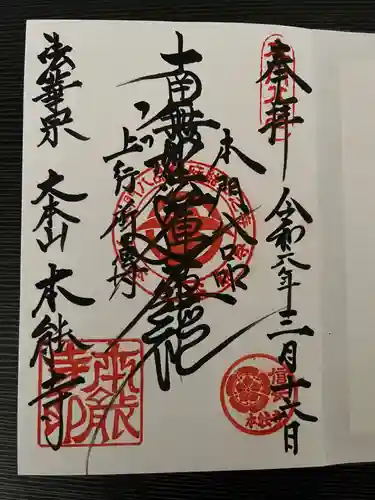 奉拝
令和六年三月十六日
本門八品
南無妙法蓮華経
上行所傳
法華宗 大本山 本能寺
本能寺印